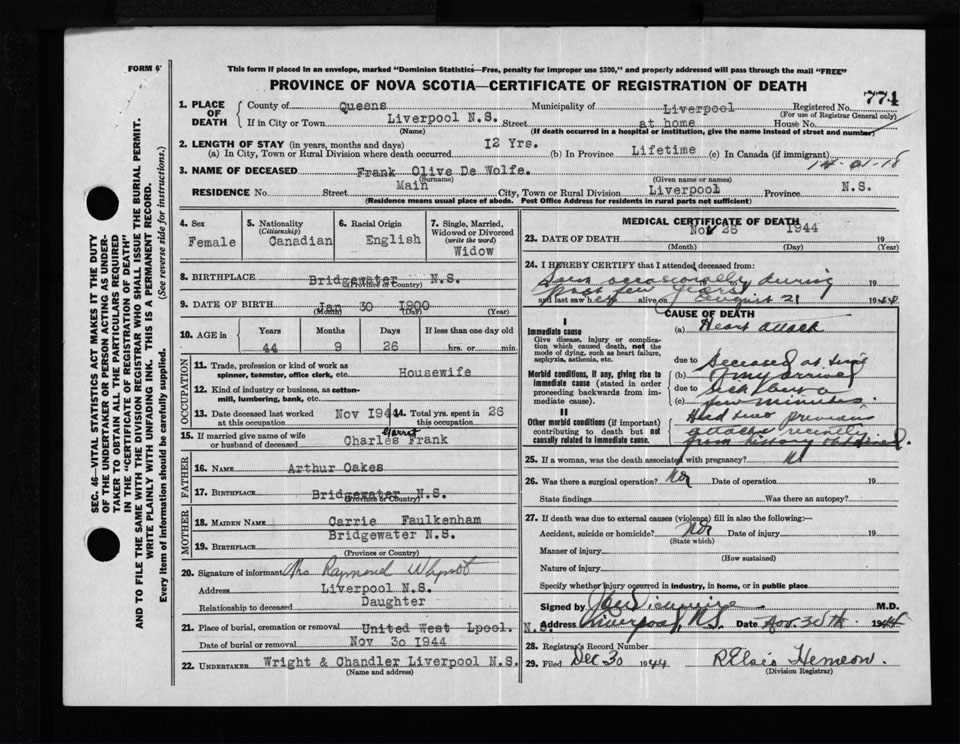 FORM 6
This form if placed in an envelope, marked "Dominion Statistics—Free, penalty for improper use $300," and properly addressed will pass through the mail "FREE"
PROVINCE OF NOVA SCOTIA—CERTIFICATE OF REGISTRATION OF DEATH
774
1. PLACE OF DEATH County of Queens Municipality of Liverpool Registered No.
(For use of Registrar General only)
If in City or Town Liverpool N.S. Street at home House No.
(Name) (If death occurred in a hospital or institution, give the name instead of street and number)
2. LENGTH OF STAY (in years, months and days)
(a) In City, Town or Rural Division where death occurred 12 Yrs. (b) In Province Lifetime (c) In Canada (if immigrant)
3. NAME OF DECEASED Frank Olive De Wolfe.
(Surname) (Given name or names)
RESIDENCE No. Street Main City, Town or Rural Division Liverpool Province N.S.
(Residence means usual place of abode. Post Office Address for residents in rural parts not sufficient)
4. Sex
Female
5. Nationality
(Citizenship)
Canadian
6. Racial Origin
English
7. Single, Married, Widowed or Divorced
(write the word)
Widow
8. BIRTHPLACE Bridgewater N.S.
(Province or Country)
9. DATE OF BIRTH Jan 30 1900
(Month) (Day) (Year)
10. AGE in Years Months Days If less than one day old
44 9 26 hrs. or min.
OCCUPATION
11. Trade, profession or kind of work as
spinner, teamster, office clerk, etc. Housewife
12. Kind of industry or business, as cotton-
mill, lumbering, bank, etc.
13. Date deceased last worked
at this occupation Nov 1944
14. Total yrs. spent in
this occupation 26
15. If married give name of wife
or husband of deceased Charles Frank
FATHER
16. NAME Arthur Oakes
17. BIRTHPLACE Bridgewater N.S.
(Province or Country)
MOTHER
18. MAIDEN NAME Carrie Faulkenham
19. BIRTHPLACE Bridgewater N.S.
(Province or Country)
20. Signature of informant Mrs Raymond Whynot
Address Liverpool N.S.
Relationship to deceased Daughter
21. Place of burial, cremation or removal United West Lpool. N.S.
Date of burial or removal Nov 30 1944
22. UNDERTAKER Wright & Chandler Liverpool N.S.
(Name and address)
MEDICAL CERTIFICATE OF DEATH
23. DATE OF DEATH Nov 26 1944 19
(Month) (Day) (Year)
24. I HEREBY CERTIFY that I attended deceased from:
Seen occasionally during
past few years 19
and last saw her alive on August 21 1944
CAUSE OF DEATH
I
Immediate cause
Give disease, injury or complication which caused death, not the mode of dying, such as heart failure, asphyxia, asthenia, etc.
(a) Heart attack
due to
Morbid conditions, if any, giving rise to immediate cause (stated in order proceeding backwards from immediate cause).
Deceased at time
(b) of my arrival
due to
sick only a
(c) few minutes.
II
Other morbid conditions (if important) contributing to death but not causally related to immediate cause.
Had two previous
attacks recently
from history obtained.
25. If a woman, was the death associated with pregnancy?
26. Was there a surgical operation? No Date of operation 19
State findings Was there an autopsy?
27. If death was due to external causes (violence) fill in also the following:—
Accident, suicide or homicide? No Date of injury 19
(State which)
Manner of injury
(How sustained)
Nature of injury
Specify whether injury occurred in industry, in home, or in public place
Signed by M.D.
Address Liverpool, N.S. Date Nov. 30th 1944
28. Registrar's Record Number
29. Filed Dec 30 1944 R Elsie Hemeon.
(Division Registrar)
SEC. 46—VITAL STATISTICS ACT MAKES IT THE DUTY
OF THE UNDERTAKER OR PERSON ACTING AS UNDER-
TAKER TO OBTAIN ALL THE PARTICULARS REQUIRED
IN THE "CERTIFICATE OF REGISTRATION OF DEATH"
AND TO FILE THE SAME WITH THE DIVISION REGISTRAR WHO SHALL ISSUE THE BURIAL PERMIT.
WRITE PLAINLY WITH UNFADING INK. THIS IS A PERMANENT RECORD.
Every item of information should be carefully supplied. (See reverse side for instructions.)